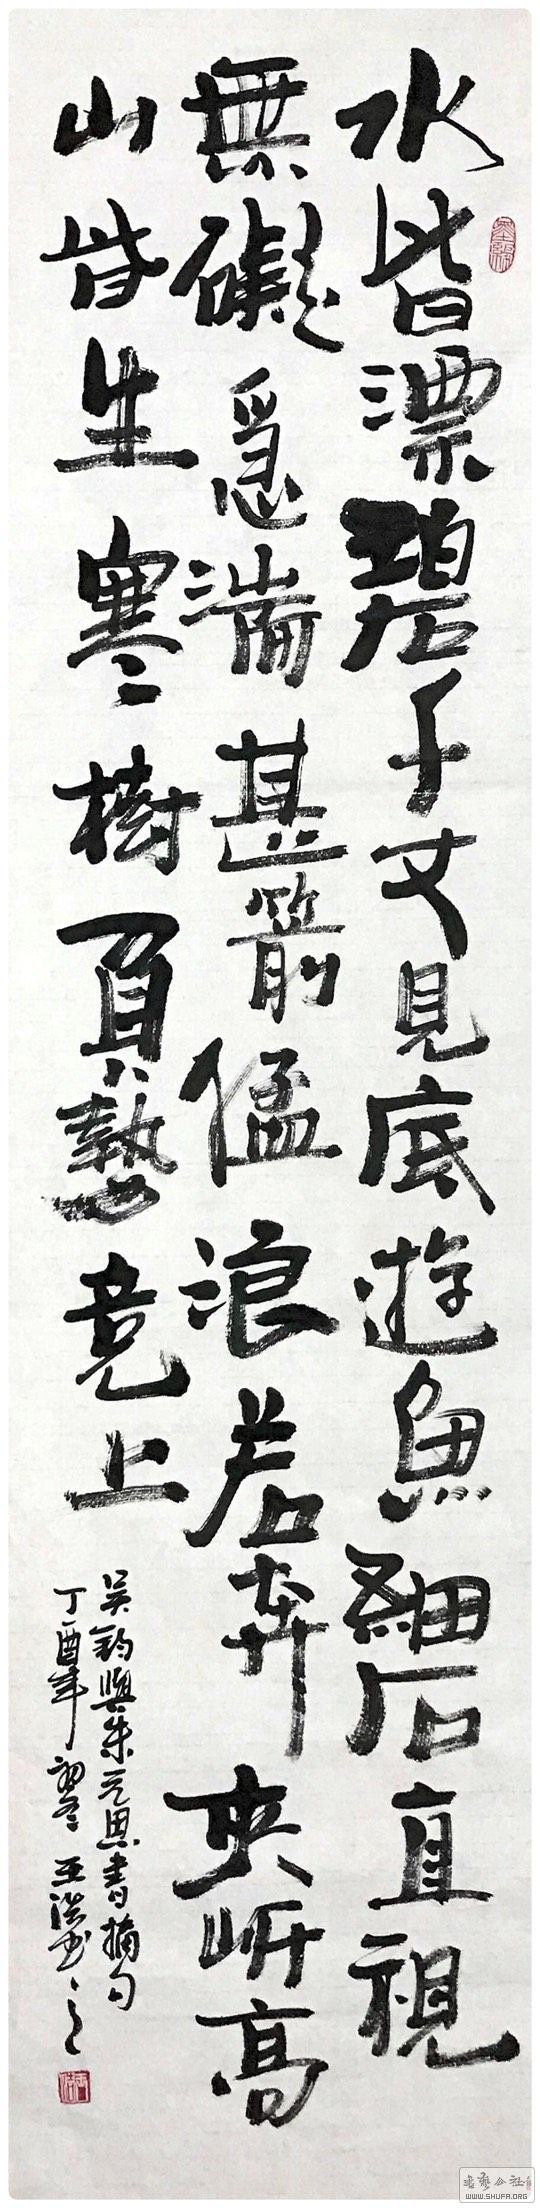 水皆漂碧千丈見底遊魚細石直視
無礙急湍甚箭猛浪若奔夾岍高
山皆生寒樹負勢竞上
吴鈞與朱元思書摘句
丁酉年初冬 亚洪书之
書藝公社
WWW.SHUFA.ORG